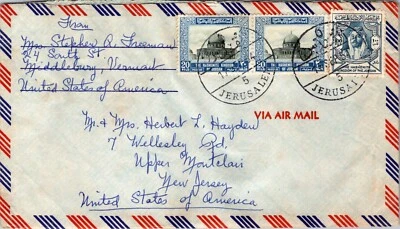 From
Mrs Stephen A. Freeman
84 South St
Middlebury, Vermont
United States of America
20
20
THE HASHEMITE KINGDOM
THE HASHEMITE KINGDOM
5
JERUSALEM
5
JERUSALE
VIA AIR MAIL
Mr & Mrs. Herbert L. Hayden
7 Wellesley Rd.
Upper Montclair
New Jersey
United States of America